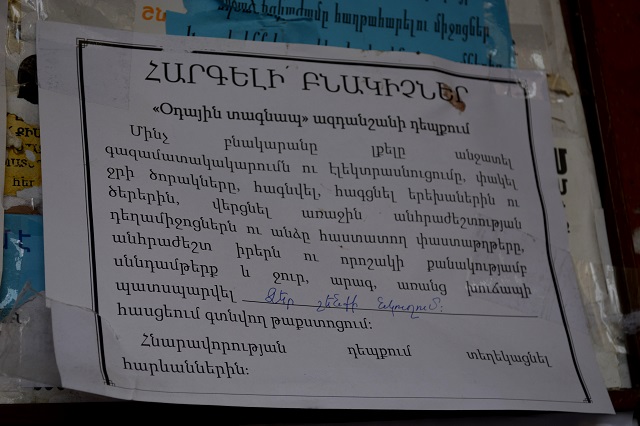 պած հրաժամը հաղթահարելու միջոցներ
ՀԱՐԳԵԼԻ՛ ԲՆԱԿԻՉՆԵՐ
«Օդային տագնապ» ազդանշանի դեպքում
Մինչ բնակարանը լքելը անջատել
գազամատակակարումն ու էլեկտրասնուցումը, փակել
ջրի ծորակները, հագնվել, հագցնել երեխաներին ու
ծերերին, վերցնել առաջին անհրաժեշտության
դեղամիջոցներն ու անձը հաստատող փաստաթղթերը,
անհրաժեշտ իրերն ու որոշակի քանակությամբ
սննդամթերք և ջուր, արագ, առանց խուճապի
պատսպարվել Ձեր շենքի նկուղում:
հասցեում գտնվող թաքստոցում:
Հնարավորության դեպքում տեղեկացնել
հարևաններին: